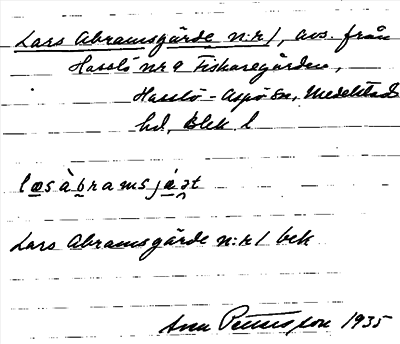 Lars Abramsgärde n:r 1, avs. från
Hasslö nr 9 Fiskaregården,
Hasslö-Aspö sn, Medelstads
hd, Blek. l
læsàbramsjæ̀ət
Lars Abramsgärde n:r 1 bek
Petterson 1935